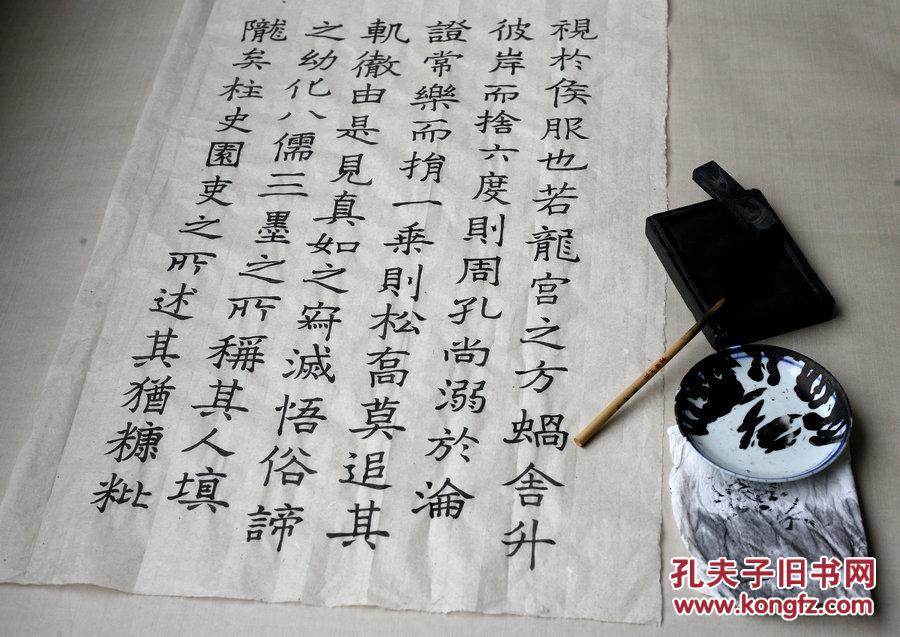 視於侯服也若龍宮之方蝸舍升
彼岸而捨六度則周孔尚溺於淪
證常樂而捐一乗則松高莫追其
軌徹由是見真如之寂滅悟俗諦
之幼化八儒三墨之所稱其人填
隴矣柱史園吏之所述其猶糠粃
孔夫子旧书网
www.kongfz.com